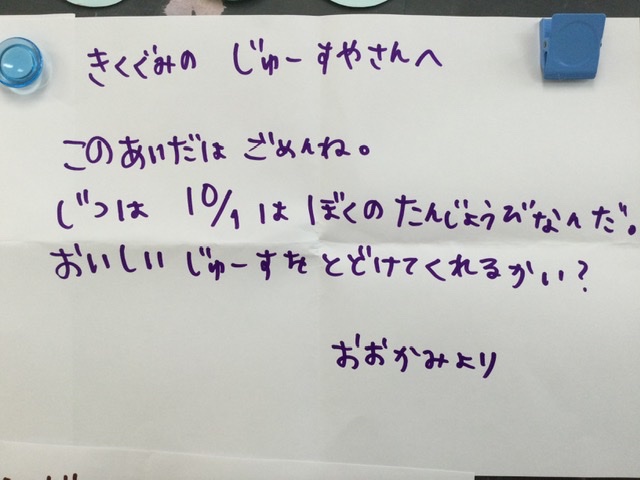 きくぐみの じゅーすやさんへ
このあいだは ごめんね。
じつは 10/1 は ぼくの たんじょうびなんだ。
おいしい じゅーすを とどけてくれるかい?
おおかみより